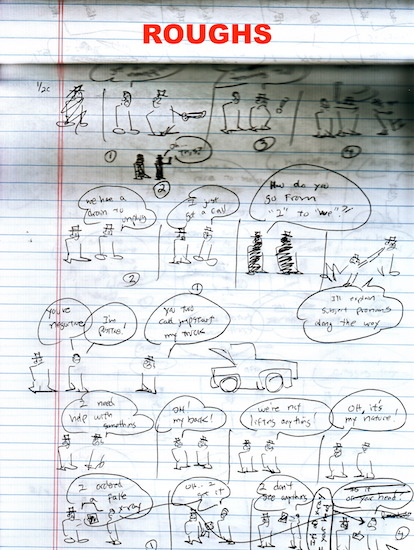 ROUGHS
1/20
①
②
③
④
we have a
drain to
unplug
I just
got a call
How do you
go from
"I" to "we"?!
②
①
I'll explain
subject pronouns
along the way
you're
negative
I'm
positive!
you two
can jumpstart
my truck
I need
help with
something
OH!
my back!
we're not
lifting anything!
OH, it's
my nature!
I ordered
fake
x-ray
OH.. I
get it
I don't
see anything
on your head!
①
④